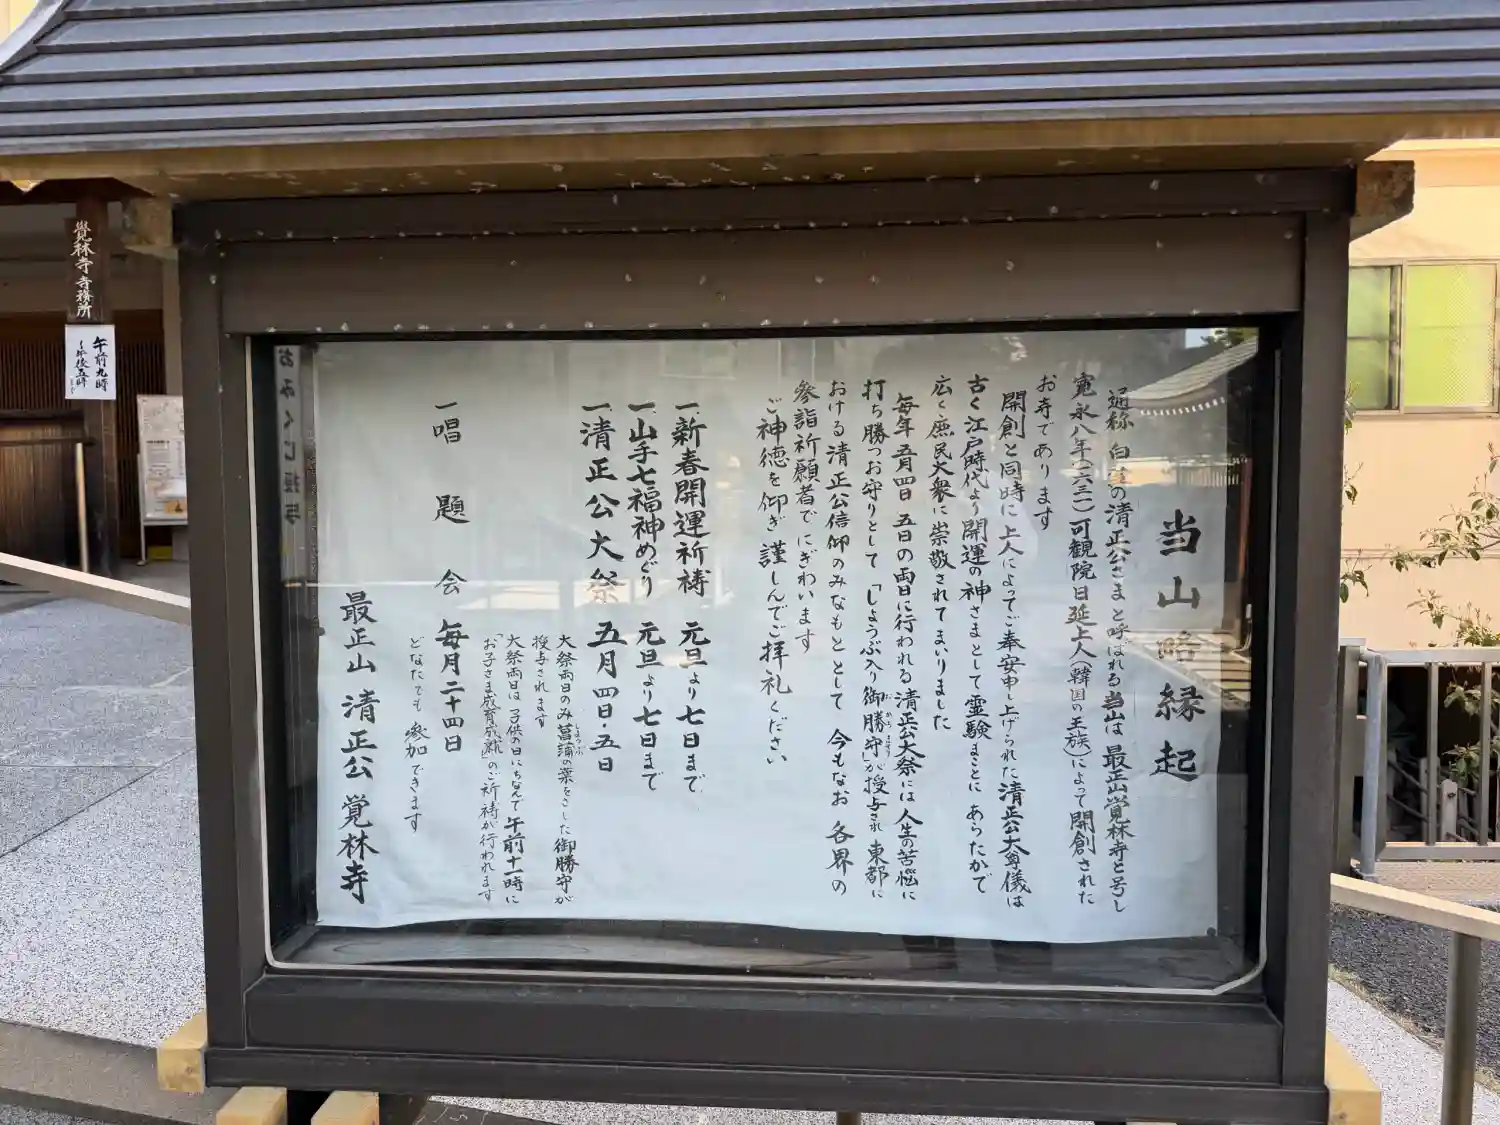 当山略縁起
通称 白金の清正公さまと呼ばれる当山は 最正山覚林寺と号し
寛永八年(一六三一)可観院日延上人(韓国の王族)によって開創された
お寺であります
開創と同時に上人によってご奉安申し上げられた清正公大尊儀は
古く江戸時代より開運の神さまとして霊験まことに あらたかで
広く庶民大衆に崇敬されてまいりました
毎年五月四日 五日の両日に行われる清正公大祭には人生の苦悩に
打ち勝つお守りとして「しょうぶ入り御勝守」が授与され 東都に
おける清正公信仰のみなもととして 今もなお 各界の
参詣祈願者でにぎわいます
ご神徳を仰ぎ 謹しんでご拝礼ください
一、新春開運祈祷 元旦より七日まで
一、山手七福神めぐり 元旦より七日まで
一、清正公大祭 五月四日・五日
大祭両日のみ菖蒲の葉をさした御勝守が
授与されます
大祭両日は 子供の日にちなんで午前十一時に
「お子さま成育成就」のご祈祷が行われます
一唱題会 毎月二十四日
どなたでも 参加できます
最正山 清正公 覚林寺
おみくじ授与
覺林寺寺務所
午前九時
〜午後五時
まで